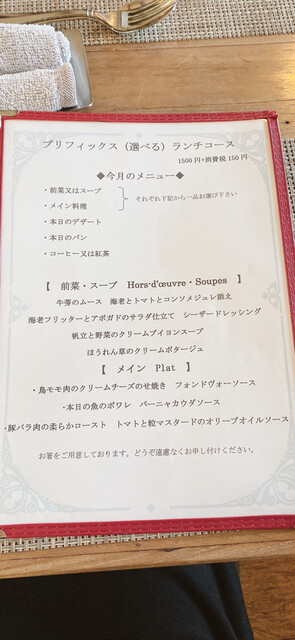 プリフィックス（選べる）ランチコース
1500円+消費税150円
◆今月のメニュー◆
・前菜又はスープ
・メイン料理
それぞれ下記から一品お選び下さい
・本日のデザート
・本日のパン
・コーヒー又は紅茶
【 前菜・スープ Hors-d'œuvre・Soupes 】
牛蒡のムース 海老とトマトとコンソメジュレ添え
海老フリッターとアボガドのサラダ仕立て シーザードレッシング
帆立と野菜のクリームブイヨンスープ
ほうれん草のクリームポタージュ
【 メイン Plat 】
・鳥モモ肉のクリームチーズのせ焼き フォンドヴォーソース
・本日の魚のポワレ バーニャカウダソース
・豚バラ肉の柔らかロースト トマトと粒マスタードのオリーブオイルソース
お箸をご用意しております。どうぞ遠慮なくお申し付けください。